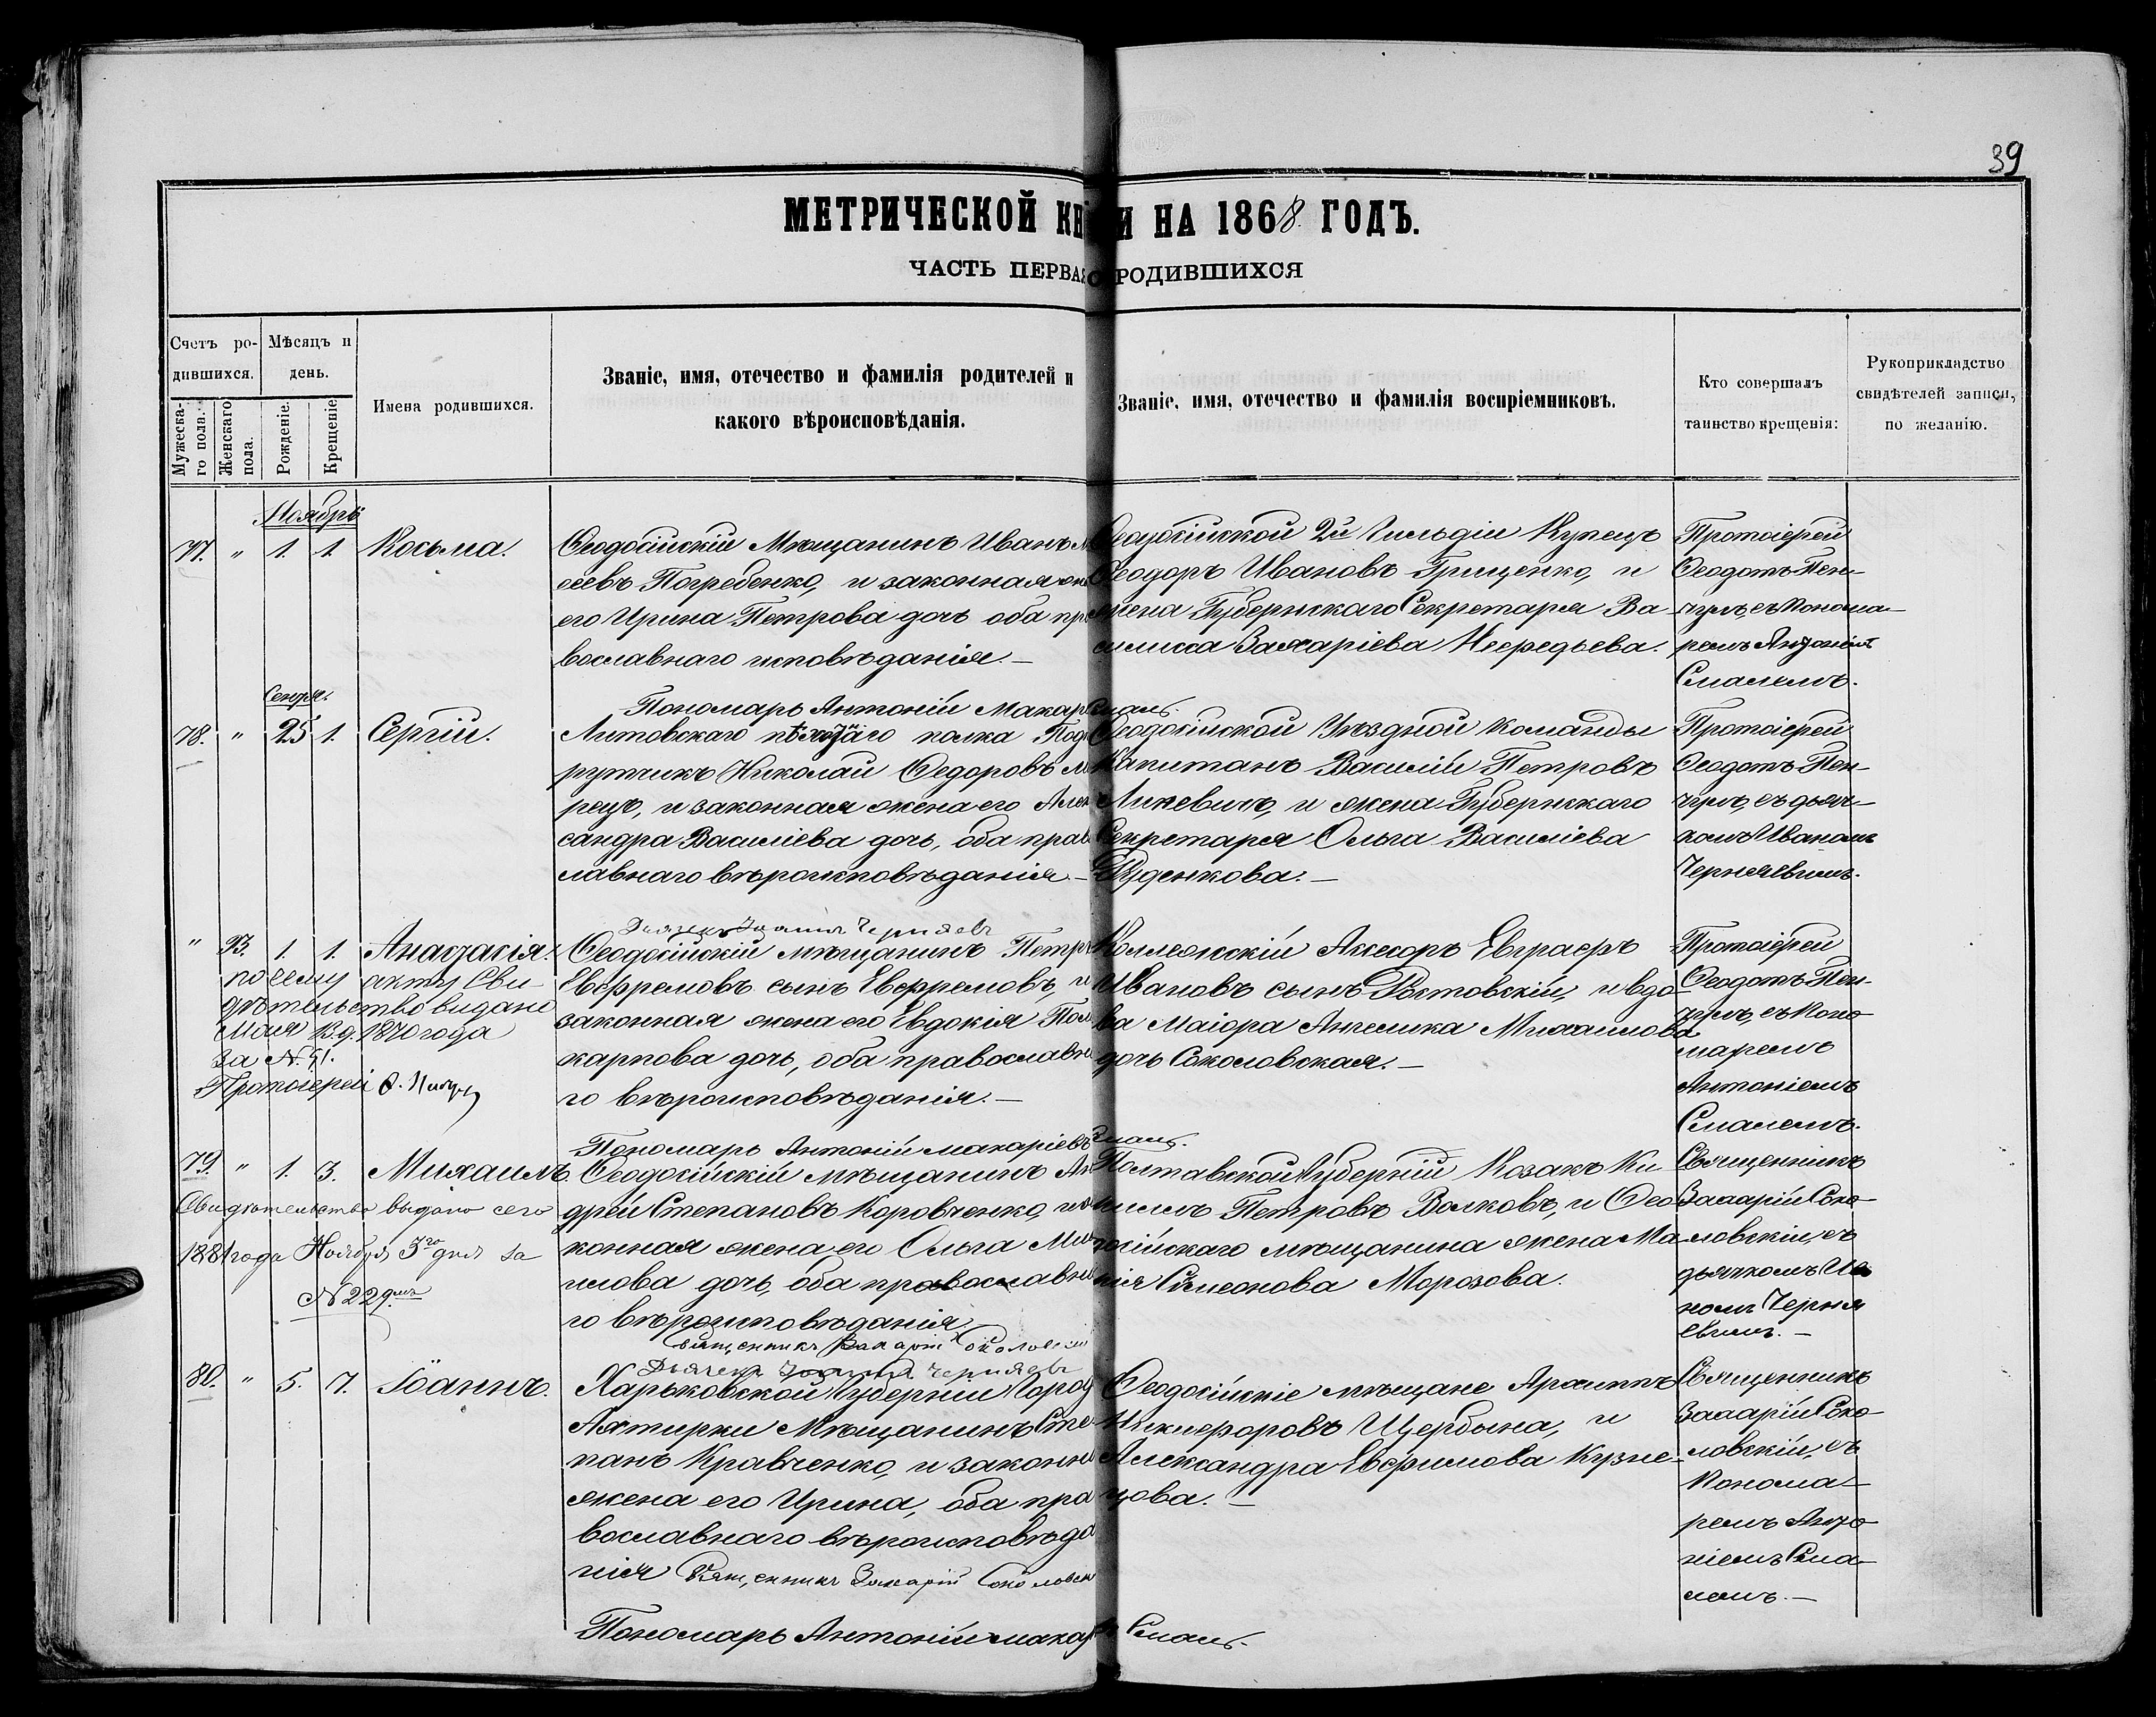 39
МЕТРИЧЕСКОЙ КН И НА 1868 ГОДЪ.
ЧАСТЬ ПЕРВАЯ О РОДИВШИХСЯ
Счетъ ро-
дившихся.
Мужеска-
го пола.
Женскаго
пола.
Мѣсяцъ и
день.
Рожденіе.
Крещеніе.
Имена родившихся.
Званіе, имя, отечество и фамилія родителей и
какого вѣроисповѣданія.
Званіе, имя, отечество и фамилія воспріемниковъ.
Кто совершалъ
таинство крещенія:
Рукоприкладство
свидѣтелей записи,
по желанію.
Ноябрь
77. " 1. 1. Косьма.
Ѳеодосійскій Мѣщанинъ Иванъ
сеевъ Погребенко, и законная
его Ирина Петрова дочь оба пра
вославнаго исповѣданія.—
Ѳеодосійской 2й Гильдіи Купецъ
Ѳеодоръ Ивановъ Грищенко, и
жена Губернскаго Секретаря Ва-
силисса Захаріева Нефедьева.
Протоіерей
Ѳеодотъ Пен-
чулъ, съ Понома-
ремъ Антоніемъ
Смалемъ.
Пономарь Антоній Макар Смаль.
Сентяб.
78. " 25 1. Сергій.
Литовскаго пѣхотнаго полка Под
ручикъ Николай Ѳедоровъ
рецъ, и законная жена его Алек
сандра Василіева дочь, оба прав
лавнаго вѣроисповѣданія.—
Ѳеодосійской Уѣздной команды
Капитанъ Василій Петровъ
и жена Губернскаго
Секретаря Ольга Василіева
Руденкова.—
Протоіерей
Ѳеодотъ Пен-
чулъ, съ дьяч-
комъ Иваномъ
Черняевымъ.
Дьячекъ Іоаннъ Черняевъ
" 93. 1. 1. Анастасія.
По сему акту Сви-
дѣтельство выдано
Мая 13 д. 1870 года
за №51.
Протоіерей Ѳ.
Ѳеодосійскій мѣщанинъ Петръ
Евфремовъ сынъ Евфремовъ, и
законная жена его Евдокія Поли
карпова дочь, оба православна
го вѣроисповѣданія.—
Коллежскій Ассесоръ Евграфъ
Ивановъ сынъ Ростовскій, и вдо-
ва Маіора Ангелика Михаилова
дочь Соколовская.—
Протоіерей
Ѳеодотъ Пен-
чулъ, съ Поно
маремъ
Антоніемъ
Смалемъ.
Пономарь Антоній Макаріевъ Смаль.
79. " 1. 3. Михаилъ.
Свидѣтельство выдано сего
1881 года Ноября 3го дня за
№229мъ
Ѳеодосійскій мѣщанинъ Ан
дрей Степановъ Коровченко, и за
конная жена его Ольга Ми
илова дочь, оба православна
го вѣроисповѣданія.
Полтавской Губерніи Козакъ Ки
риллъ Петровъ Волковъ, и Ѳео
досійскаго мѣщанина жена Ма
рія Симеонова Морозова.
Священникъ
Захарій Соко-
ловскій, съ
дьячкомъ Ива
номъ Черня
евымъ.—
Священникъ Захарій Соколовскій
Дьячекъ Іоаннъ Черняевъ
80. " 5. 7. Іоаннъ.
Харьковской Губерніи Город
Ахтирки Мѣщанинъ Сте-
панъ Кравченко, и законна
жена его Ирина, оба пра
вославнаго вѣроисповѣда
нія Священникъ Захарій Соколовск
Ѳеодосійскіе мѣщане Архиппъ
Никифоровъ Щербына, и
Александра Евфимова Кузне-
цова.—
Священникъ
Захарій Соко-
ловскій, съ
Понома-
ремъ Анто
ніемъ Сма-
лемъ.—
Пономарь Антоній Макар Смаль.